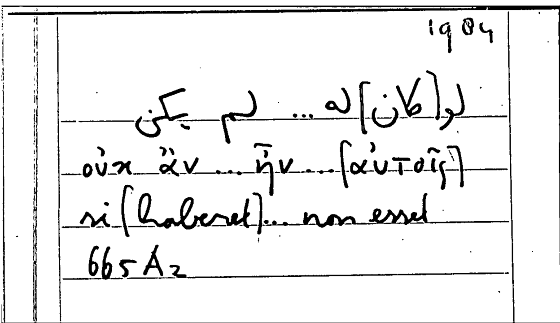 1904
لو [كان] له ... لم يكن
οὐκ ἂν ... ἦν ... [αὐτοῖς]
si [haberet] ... non esset
665 A2